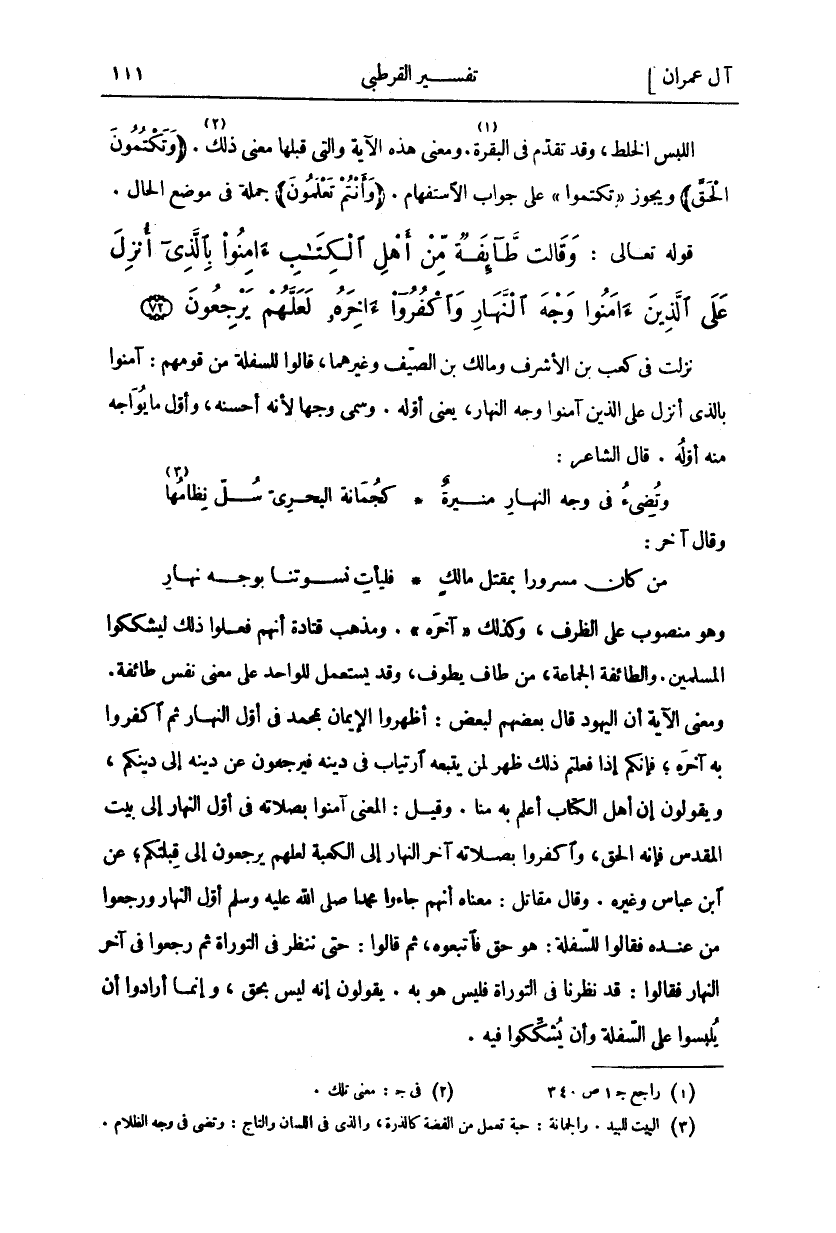 آل عمران ] تفســـير القرطبي ١١١
اللبس الخلط، وقد تقدّم فى البقرة (١). ومعنى هذه الآية والتى قبلها معنى ذلك (٢) . ﴿وَتَكْتُمُونَ
الْحَقَّ﴾ ويجوز « تكتموا » على جواب الاستفهام . ﴿وَأَنْتُمْ تَعْلَمُونَ﴾ جملة فى موضع الحال .
قوله تعالى : وَقَالَت طَّآئِفَةٌ مِّنْ أَهْلِ ٱلْكِتَٰبِ ءَامِنُوا۟ بِٱلَّذِىٓ أُنزِلَ
عَلَى ٱلَّذِينَ ءَامَنُوا وَجْهَ ٱلنَّهَارِ وَٱكْفُرُوٓا۟ ءَاخِرَهُۥ لَعَلَّهُمْ يَرْجِعُونَ ﴿٧٢﴾
نزلت فى كعب بن الأشرف ومالك بن الصيّف وغيرهما، قالوا للسفلة من قومهم : آمنوا
بالذى أنزل على الذين آمنوا وجه النهار، يعنى أوّله . وسمى وجها لأنه أحسنه، وأوّل مايُوَاجه
منه أوّلُه . قال الشاعر :
وتُضىءُ فى وجه النهارِ منيرةً * كجُمَانة البحرىّ سُلّ نِظامُها (٣)
وقال آخر :
من كان مسرورا بمقتل مالكٍ * فليأتِ نسوتنا بوجه نهارِ
وهو منصوب على الظرف ، وكذلك « آخرَه » . ومذهب قتادة أنهم فعلوا ذلك ليشككوا
المسلمين. والطائفة الجماعة، من طاف يطوف، وقد يستعمل للواحد على معنى نفس طائفة.
ومعنى الآية أن اليهود قال بعضهم لبعض : أظهروا الإيمان بمحمد فى أوّل النهار ثم ٱكفروا
به آخرَه ؛ فإنكم إذا فعلتم ذلك ظهر لمن يتبعه ٱرتياب فى دينه فيرجعون عن دينه إلى دينكم ،
ويقولون إن أهل الكتاب أعلم به منا . وقيل : المعنى آمنوا بصلاته فى أوّل النهار إلى بيت
المقدس فإنه الحق، وٱكفروا بصلاته آخر النهار إلى الكعبة لعلهم يرجعون إلى قِبلتكم؛ عن
ٱبن عباس وغيره . وقال مقاتل : معناه أنهم جاءوا محمدا صلى الله عليه وسلم أوّل النهار ورجعوا
من عنده فقالوا للسّفلة : هو حق فٱتبعوه، ثم قالوا : حتى ننظر فى التوراة ثم رجعوا فى آخر
النهار فقالوا : قد نظرنا فى التوراة فليس هو به . يقولون إنه ليس بحق ، وإنما أرادوا أن
يُلبسوا على السّفلة وأن يُشكّكوا فيه .
(١) راجع جـ ١ ص ٣٤٠ (٢) فى جـ : معنى تلك .
(٣) البيت للبيد . والجمانة : حبة تعمل من الفضة كالدرة ، والذى فى اللسان والتاج : وتضى فى وجه الظلام .